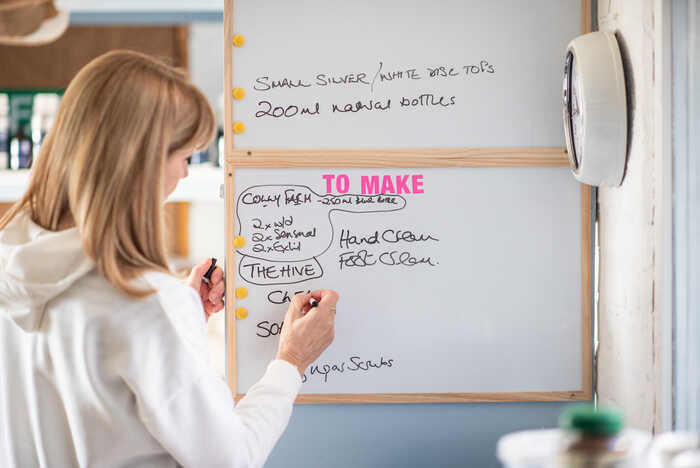 SMALL SILVER / WHITE DISC TOPS
200ml natural bottles
TO MAKE
COWY FARM - 250ml
2 x wld
2 x Sensual
2 x Exld
THE HIVE
Hand Cream
Foot Cream.
Sugar Scrubs